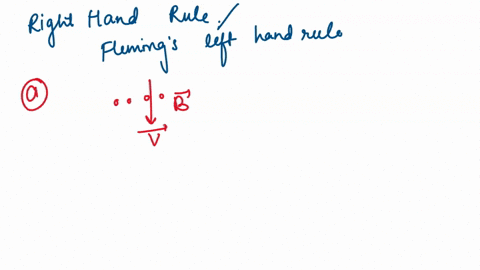 Right Hand Rule. /
Fleming's left hand rule
a
B
V